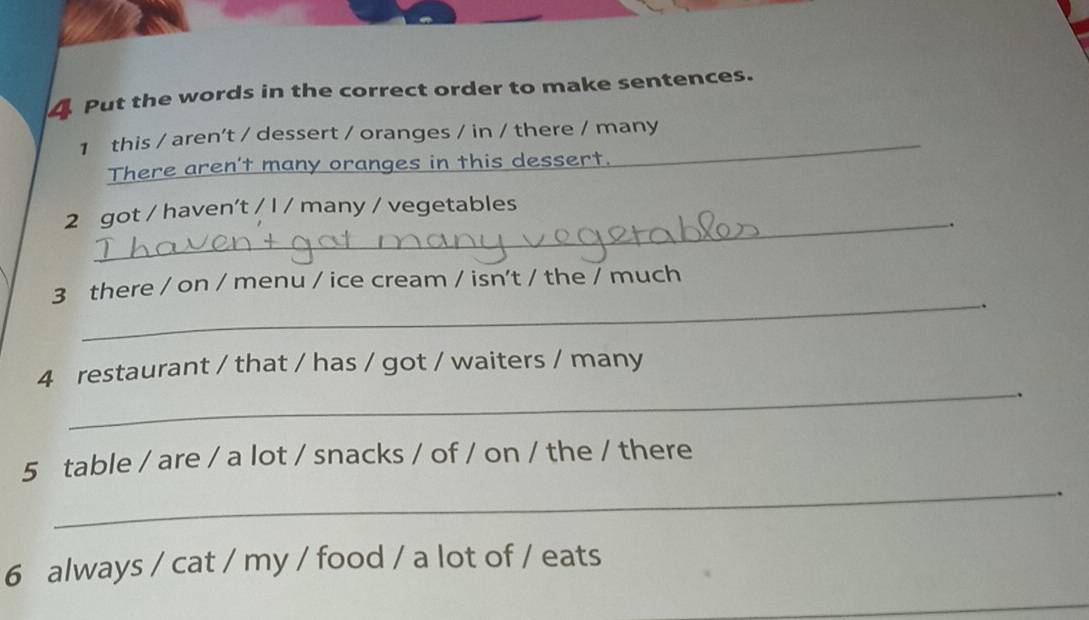 4 Put the words in the correct order to make sentences.
1 this / aren't / dessert / oranges / in / there / many
There aren't many oranges in this dessert.
2 got / haven't / I / many / vegetables
I haven't gat many vegetables.
3 there / on / menu / ice cream / isn't / the / much
.
4 restaurant / that / has / got / waiters / many
.
5 table / are / a lot / snacks / of / on / the / there
.
6 always / cat / my / food / a lot of / eats